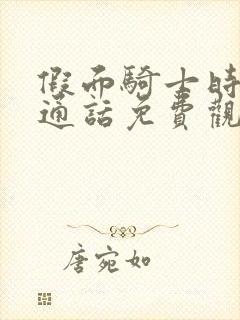 假面騎士時
通話免費觀
唐宛如